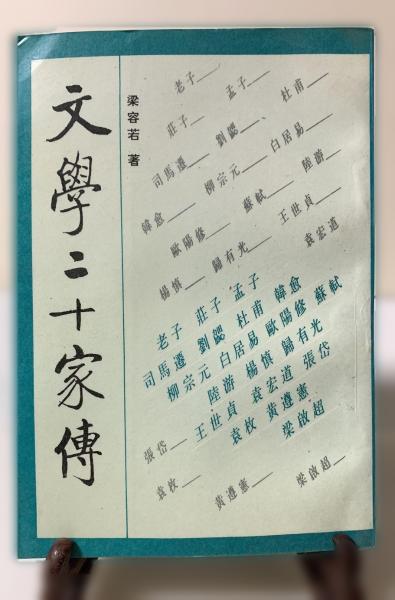 文學二十家傳
梁容若 著
老子 孟子 杜甫
莊子 劉勰 白居易 陸游
司馬遷 柳宗元 蘇軾 王世貞
韓愈 歐陽修 歸有光 袁宏道
楊慎
老子 莊子 孟子
司馬遷 劉勰 杜甫 韓愈
柳宗元 白居易 歐陽修 蘇軾
陸游 楊慎 歸有光
王世貞 袁宏道 張岱
袁枚 黃遵憲
梁啟超
張岱
袁枚 黃遵憲 梁啟超